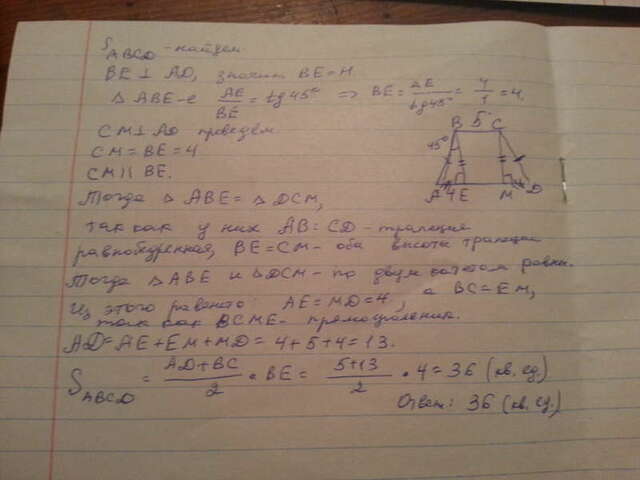 S ABCD - найдем
BE ⊥ AD, значит BE = H
△ ABE - е AE/BE = tg 45° => BE = AE/tg45° = 4/1 = 4.
CM ⊥ AD проведем
CM = BE = 4
CM || BE.
B 5 C
45°
A 4 E M D
Тогда △ ABE = △ DCM,
так как у них AB = CD - трапеция
равнобедренная, BE = CM - оба высоты трапеции
Тогда △ ABE и △ DCM - по двум катетам равны.
Из этого равенств: AE = MD = 4, а BC = EM,
так как BCME - прямоугольник.
AD = AE + EM + MD = 4 + 5 + 4 = 13.
S ABCD = (AD + BC)/2 • BE = (5 + 13)/2 • 4 = 36 (кв. ед)
Ответ: 36 (кв. ед.)